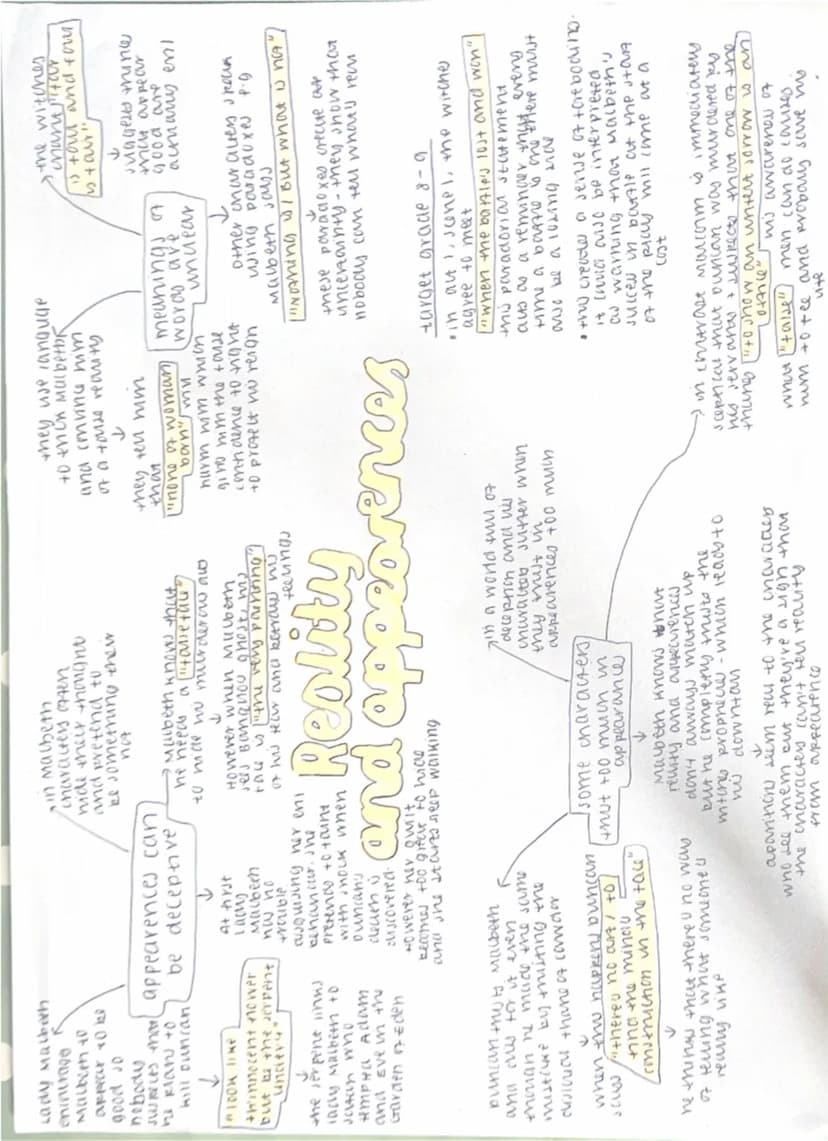 Reality
and appearences
appearences can
be deceptive
in Macbeth
characters often
hide their thoughts
and pretend to
be something their
not
Lady Macbeth
encourages
Macbeth to
appear to be
good so
nobody
suspects how
he plans to
kill Duncan
"look like
th'innocent flower
but be the serpent
under't"
the serpent links
lady Macbeth to
satan who
tempted Adam
and Eve in the
Garden of Eden
At first
lady
Macbeth
has no
trouble
disguising her evil
behaviour. she
pretends to faint
with shock when
Duncan's
death is
discovered.
However her guilt
becomes too great to hide
and she starts sleep walking
Macbeth knows that
he needs a "false face"
to hide his murderous acts
However when Macbeth
sees Banquo's ghost, his
face is "the very painting"
of his fear and betrays his
feelings
meanings of
words are
unclear
the witches
chant "fair
is foul and foul
is fair"
suggests things
that appear
good are
actually evil
they use language
to trick Macbeth
and convince him
of a false reality
they tell him
that
"none of woman
born" will
harm him which
give him the false
confidence to fight
to protect his reign
other characters speak
using paradoxes e.g
Macbeth says
"Nothing is / But what is not"
these paradoxes create an
uncertainty - they show that
nobody can tell what's real
some characters
trust too much in
appearance
in a world full of
deception and lies
characters suffer when
they trust in
appearences too much
Duncan trusts Macbeth
and dies for it even
though he made the same
mistake by trusting the
disloyal thane of Cawdor
when this happens Duncan
says "there's no art / to
find the mind's
construction in the face"
he thinks that there's no way
of telling what someone's
really like
Macbeth knows that
reality and appearences
don't always match up
but he completely trusts the
witches prophecies - which leads to
his downfall
apparitions seem real to the characters
who see them but they're a sign that
the characters can't tell reality
from appearence
in contrast Malcolm is immediately
sceptical that Duncan was murdered by
his servants + suspects that one of the
thanes "to show an unfelt sorrow is an
office" his awareness of
what "false" men can do causes
him to flee and probably save his
life
target grade 8-9
• in act 1, scene 1, the witches
agree to meet
"when the battle's lost and won"
this paradoxical statement
acts as a reminder that every
time a battle is won there must
also be a losing side
• this creates a sense of foreboding.
it could also be interpreted
as warning that Macbeth's
success in battle at the start
of the play will come at a
cost